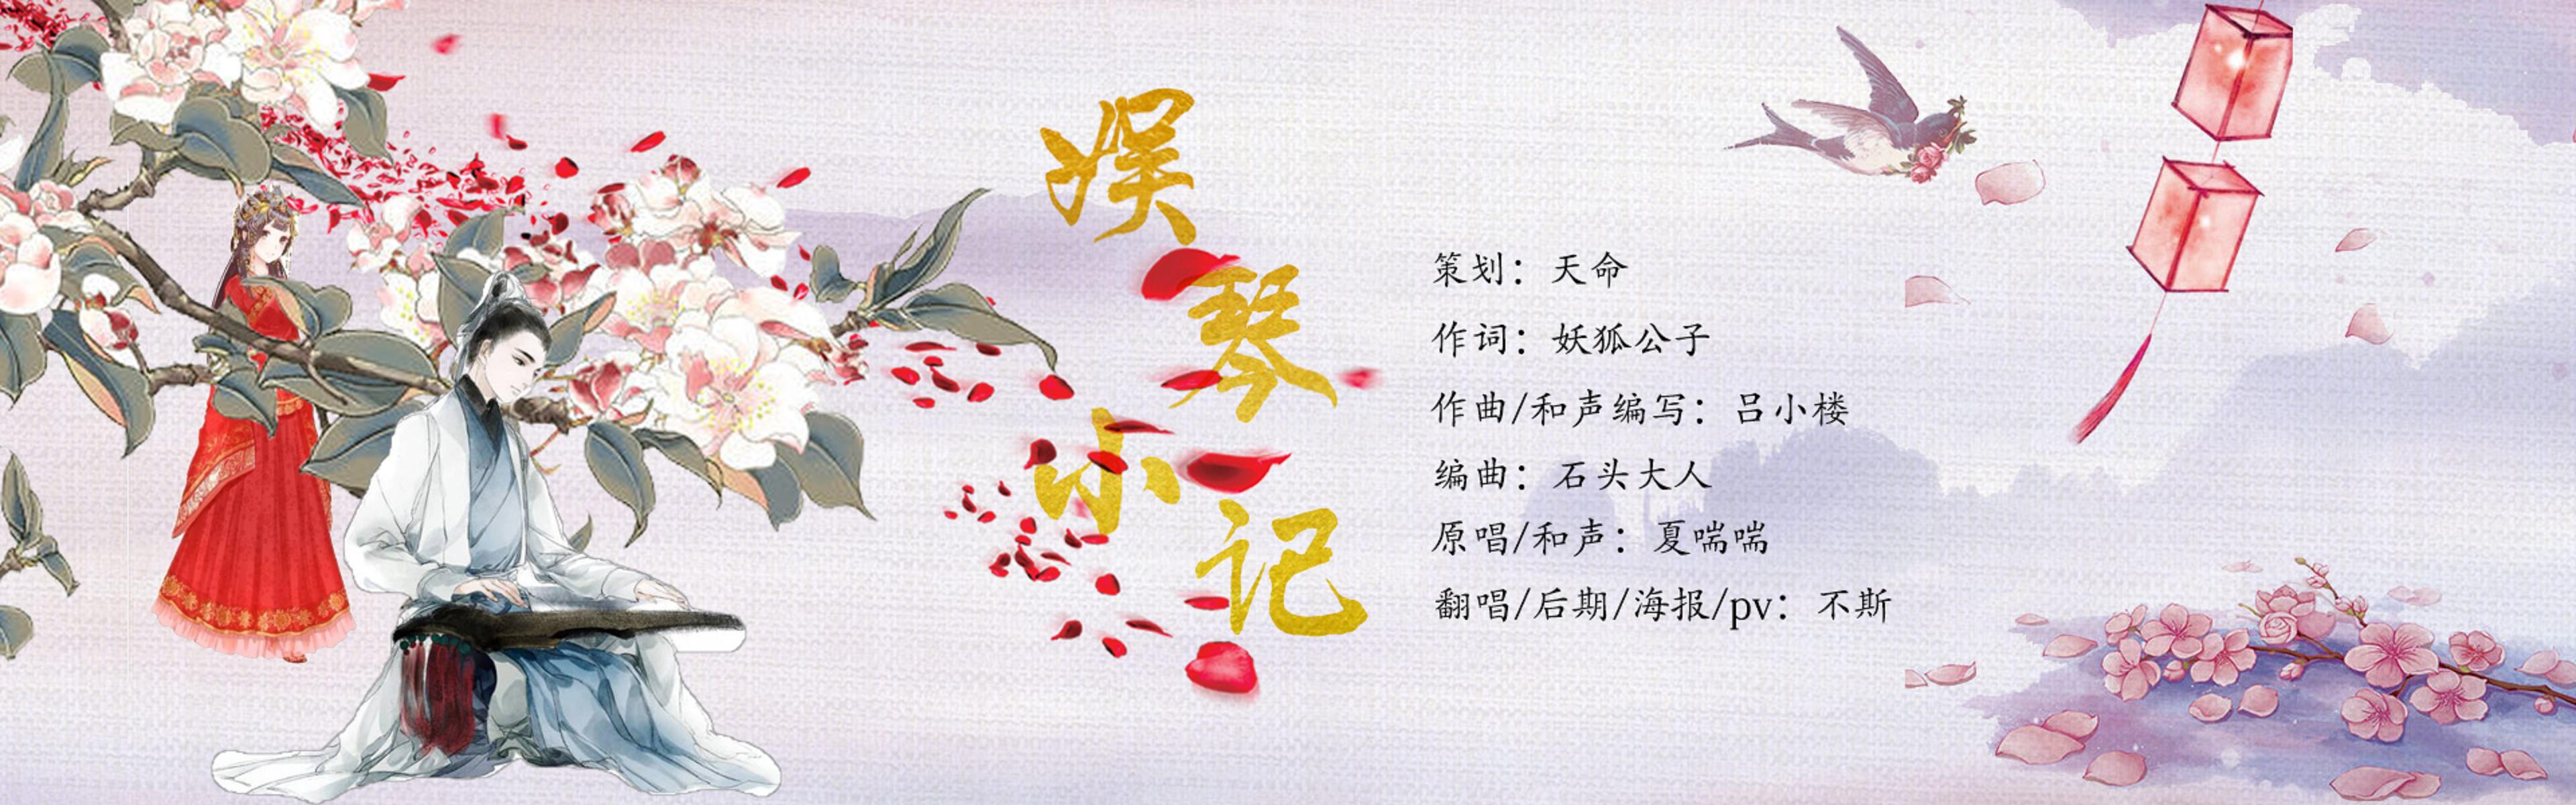 娱琴小记
策划：天命
作词：妖狐公子
作曲/和声编写：吕小楼
编曲：石头大人
原唱/和声：夏喘喘
翻唱/后期/海报/pv：不斯